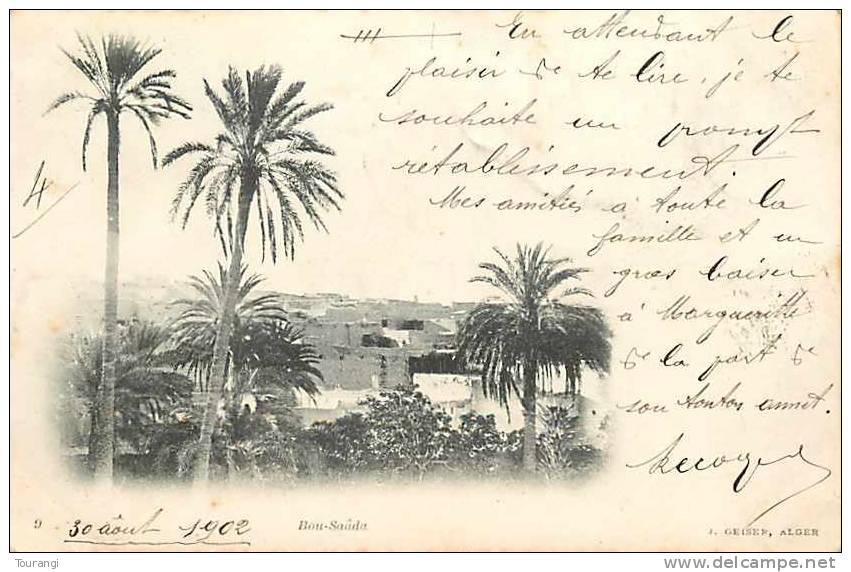 En attendant le
plaisir de te lire, je te
souhaite un prompt
rétablissement.
Mes amitiés à toute la
famille et un
gros baiser
à Marguerite
de la part de
son tonton
4
9 30 août 1902 Bou-Saâda J. GEISER, ALGER
Tourangi http://www.delcampe.net